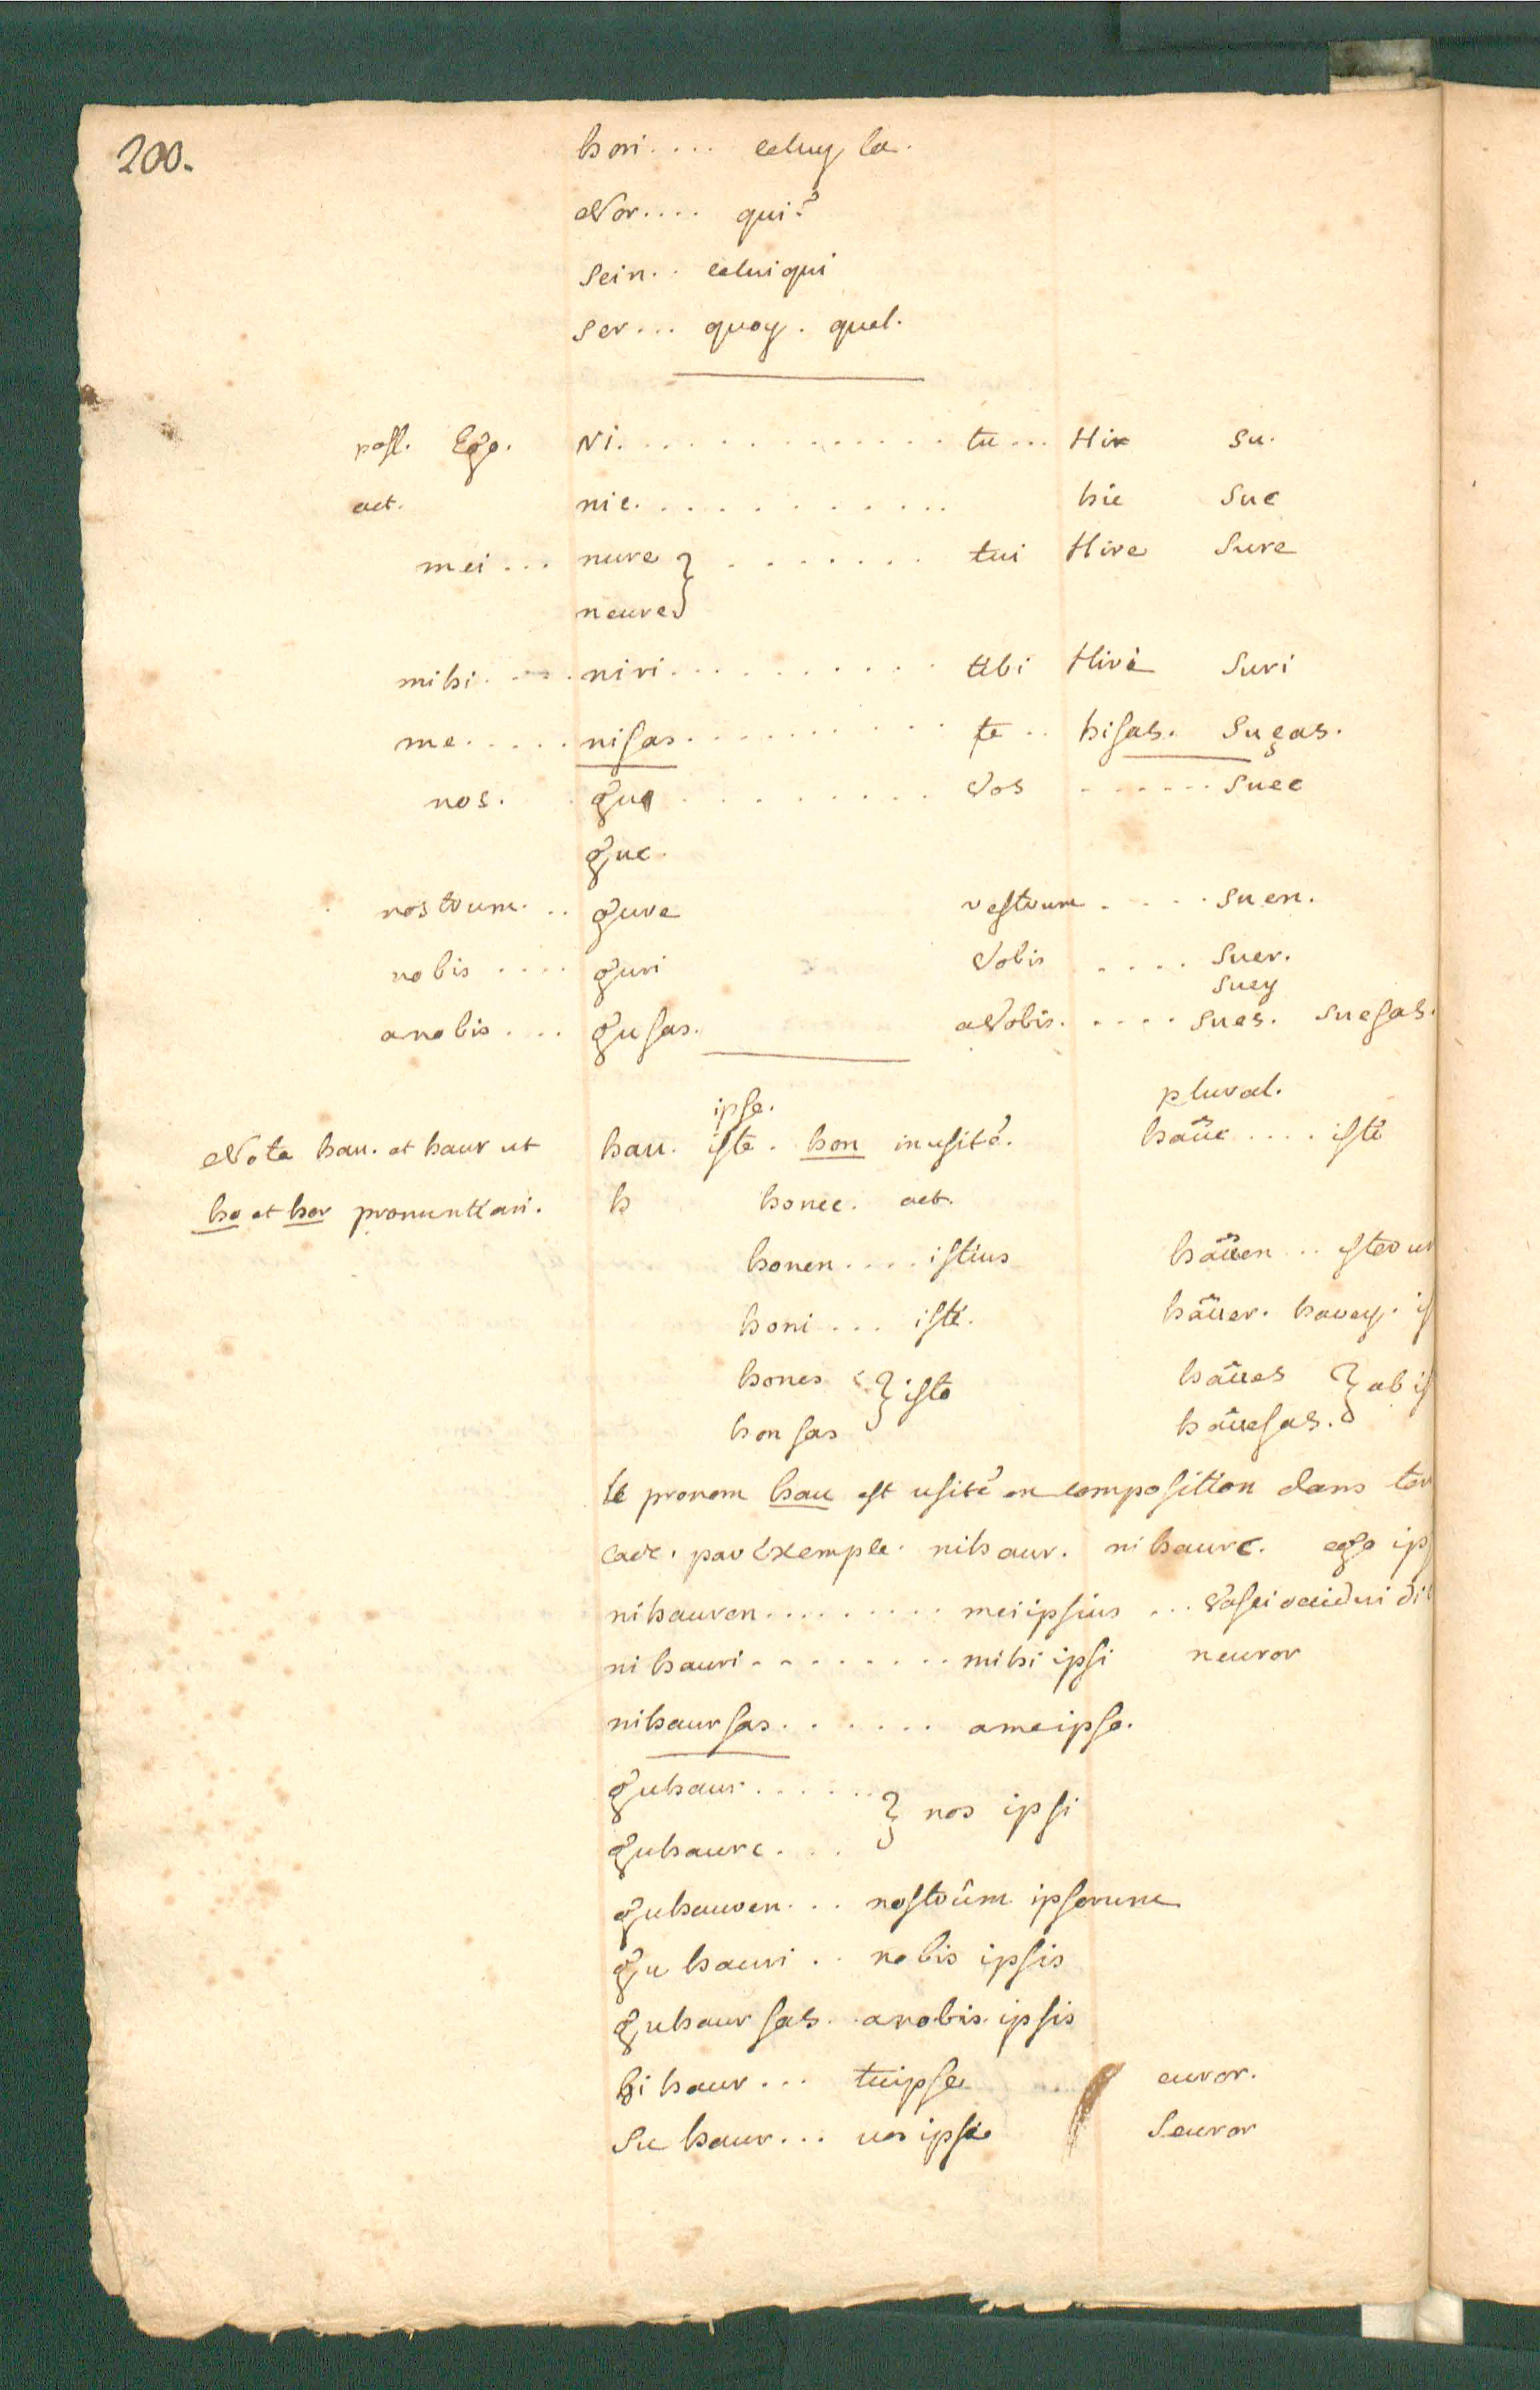 200.
hori.... celuy la.
Nor.... qui?
sein.. celui qui
ser... quoy. quel.
pass. Ego. Ni............. tu... Hir su.
act. nic............ hic suc
mei... nure } ....... tui Hire sure
neure
mihi.....niri.......... tibi Hiri suri
me.....nisas.......... te.. hisas. suças.
nos. gu ......... vos ......suec
guc.
nostrum... gure vestrum .....suen.
nobis .... guri vobis .... suer.
suey
anobis.... gusas. avobis..... sues. suesas.
ipse. plural.
Nota hau. et haur ut hau. iste. hon inusité. haüc .... isti
ho et hor pronuntiari. h honec. act.
honen.... istius haüen .. isto
honi... isti. haüer. hauey. i
hones } isto haües } ab i
honsas haüesas.
le pronom hau est usité en composition dans
par Exemple. nihaur. nihaurc. ego ip
nihauren......... mei ipsius ...
nihauri........mihi ipsi neuror
nihaursas....... ameipso.
guhaur...... } nos ipsi
guhaurc....
guhauren... nostrûm ipsorum
guhauri.. nobis ipsis
guhaursas. anobis ipsis
hihaur... tuipse euror.
Suhaur... uos ipse Seuror